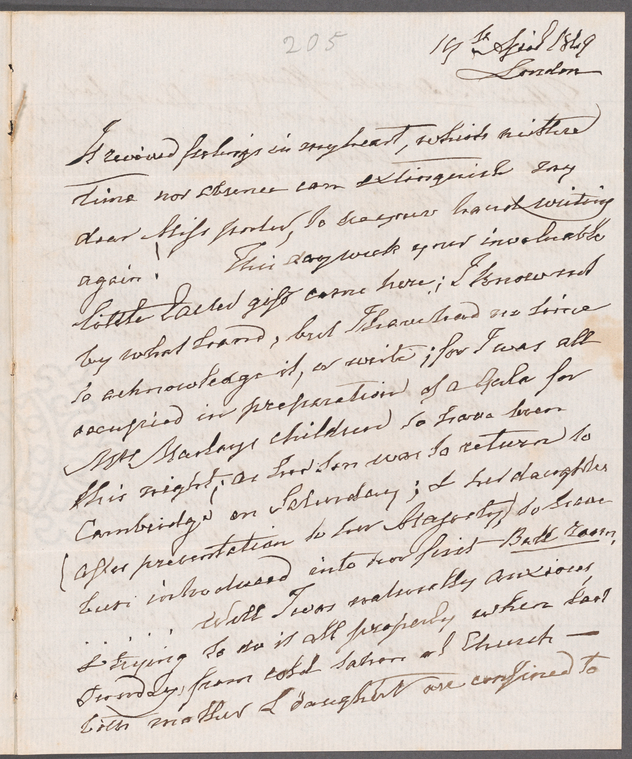 205
19th April 1849
London
It revived feelings in my heart, which neither
time nor absence can extinguish my
dear Miss Porter, to see your hand writing
again! This day week your invaluable
little Sacred gift came here; I know not
by what hand, but I have had no time
to acknowledge it, or write; for I was all
occupied in preparation of a Gala for
Mrs children to have been
this night; as her Son was to return to
Cambridge on Saturday; & her daughter
(after presentation to her Majesty) to have
been introduced into her first Ball room.
...... Well I was naturally anxious,
& trying to do it all properly when last
Sunday, from cold taken at Church —
both mother & daughter are confined to